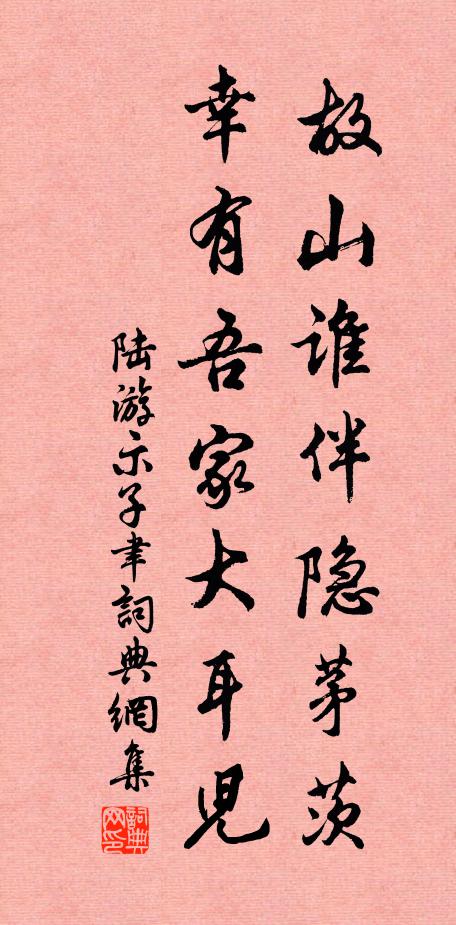 故山谁伴隐茅茨
幸有吾家大耳児
陆游示子聿詞典網集
詞典網印